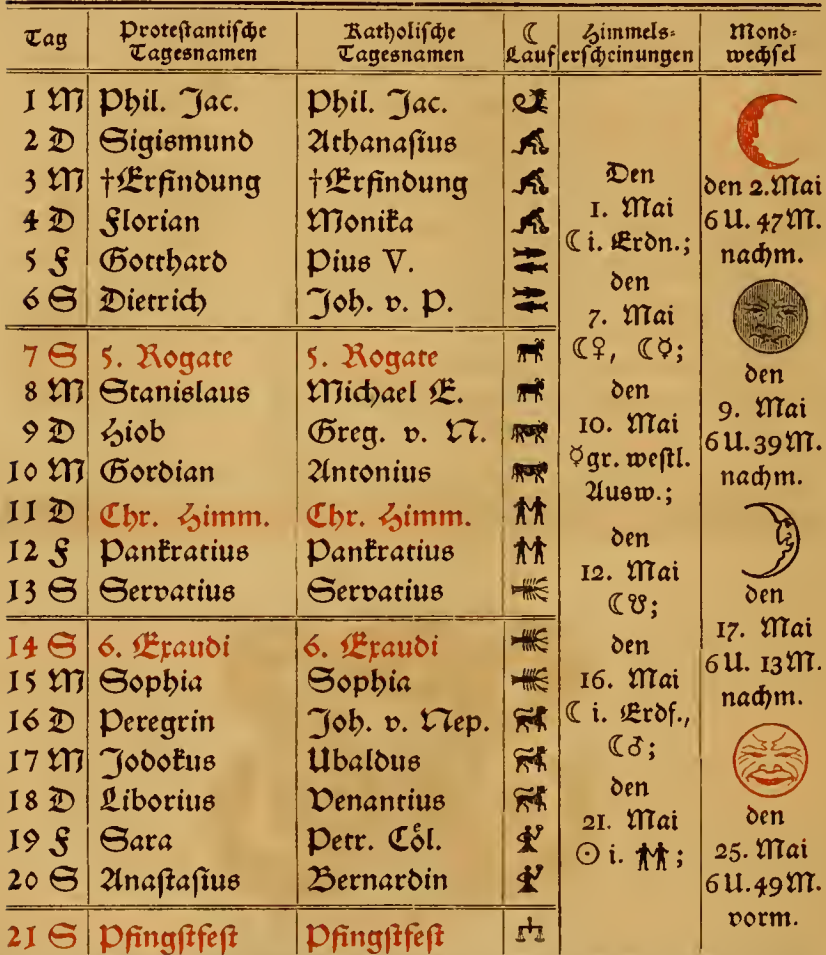 Tag
Protestantische
Tagesnamen
Katholische
Tagesnamen
☾
Lauf
Himmels-
erscheinungen
Mond-
wechsel
1 M Phil. Jac. Phil. Jac.
2 D Sigismund Athanasius
3 M †Erfindung †Erfindung
4 D Florian Monika
5 F Gotthard Pius V.
6 S Dietrich Joh. v. P.
7 S 5. Rogate 5. Rogate
8 M Stanislaus Michael E.
9 D Hiob Greg. v. N.
10 M Gordian Antonius
11 D Chr. Himm. Chr. Himm.
12 F Pankratius Pankratius
13 S Servatius Servatius
14 S 6. Exaudi 6. Exaudi
15 M Sophia Sophia
16 D Peregrin Joh. v. Nep.
17 M Jodokus Ubaldus
18 D Liborius Venantius
19 F Sara Petr. Cöl.
20 S Anastasius Bernardin
21 S Pfingstfest Pfingstfest
Den
1. Mai
☾ i. Erdn.;
den
7. Mai
☾♀, ☾☿;
den
10. Mai
☿gr. westl.
Ausw.;
den
12. Mai
☾☋;
den
16. Mai
☾ i. Erdf.,
☾♂;
den
21. Mai
☉ i. ♊;
den 2. Mai
6 U. 47 M.
nachm.
den
9. Mai
6 U. 39 M.
nachm.
den
17. Mai
6 U. 13 M.
nachm.
den
25. Mai
6 U. 49 M.
vorm.